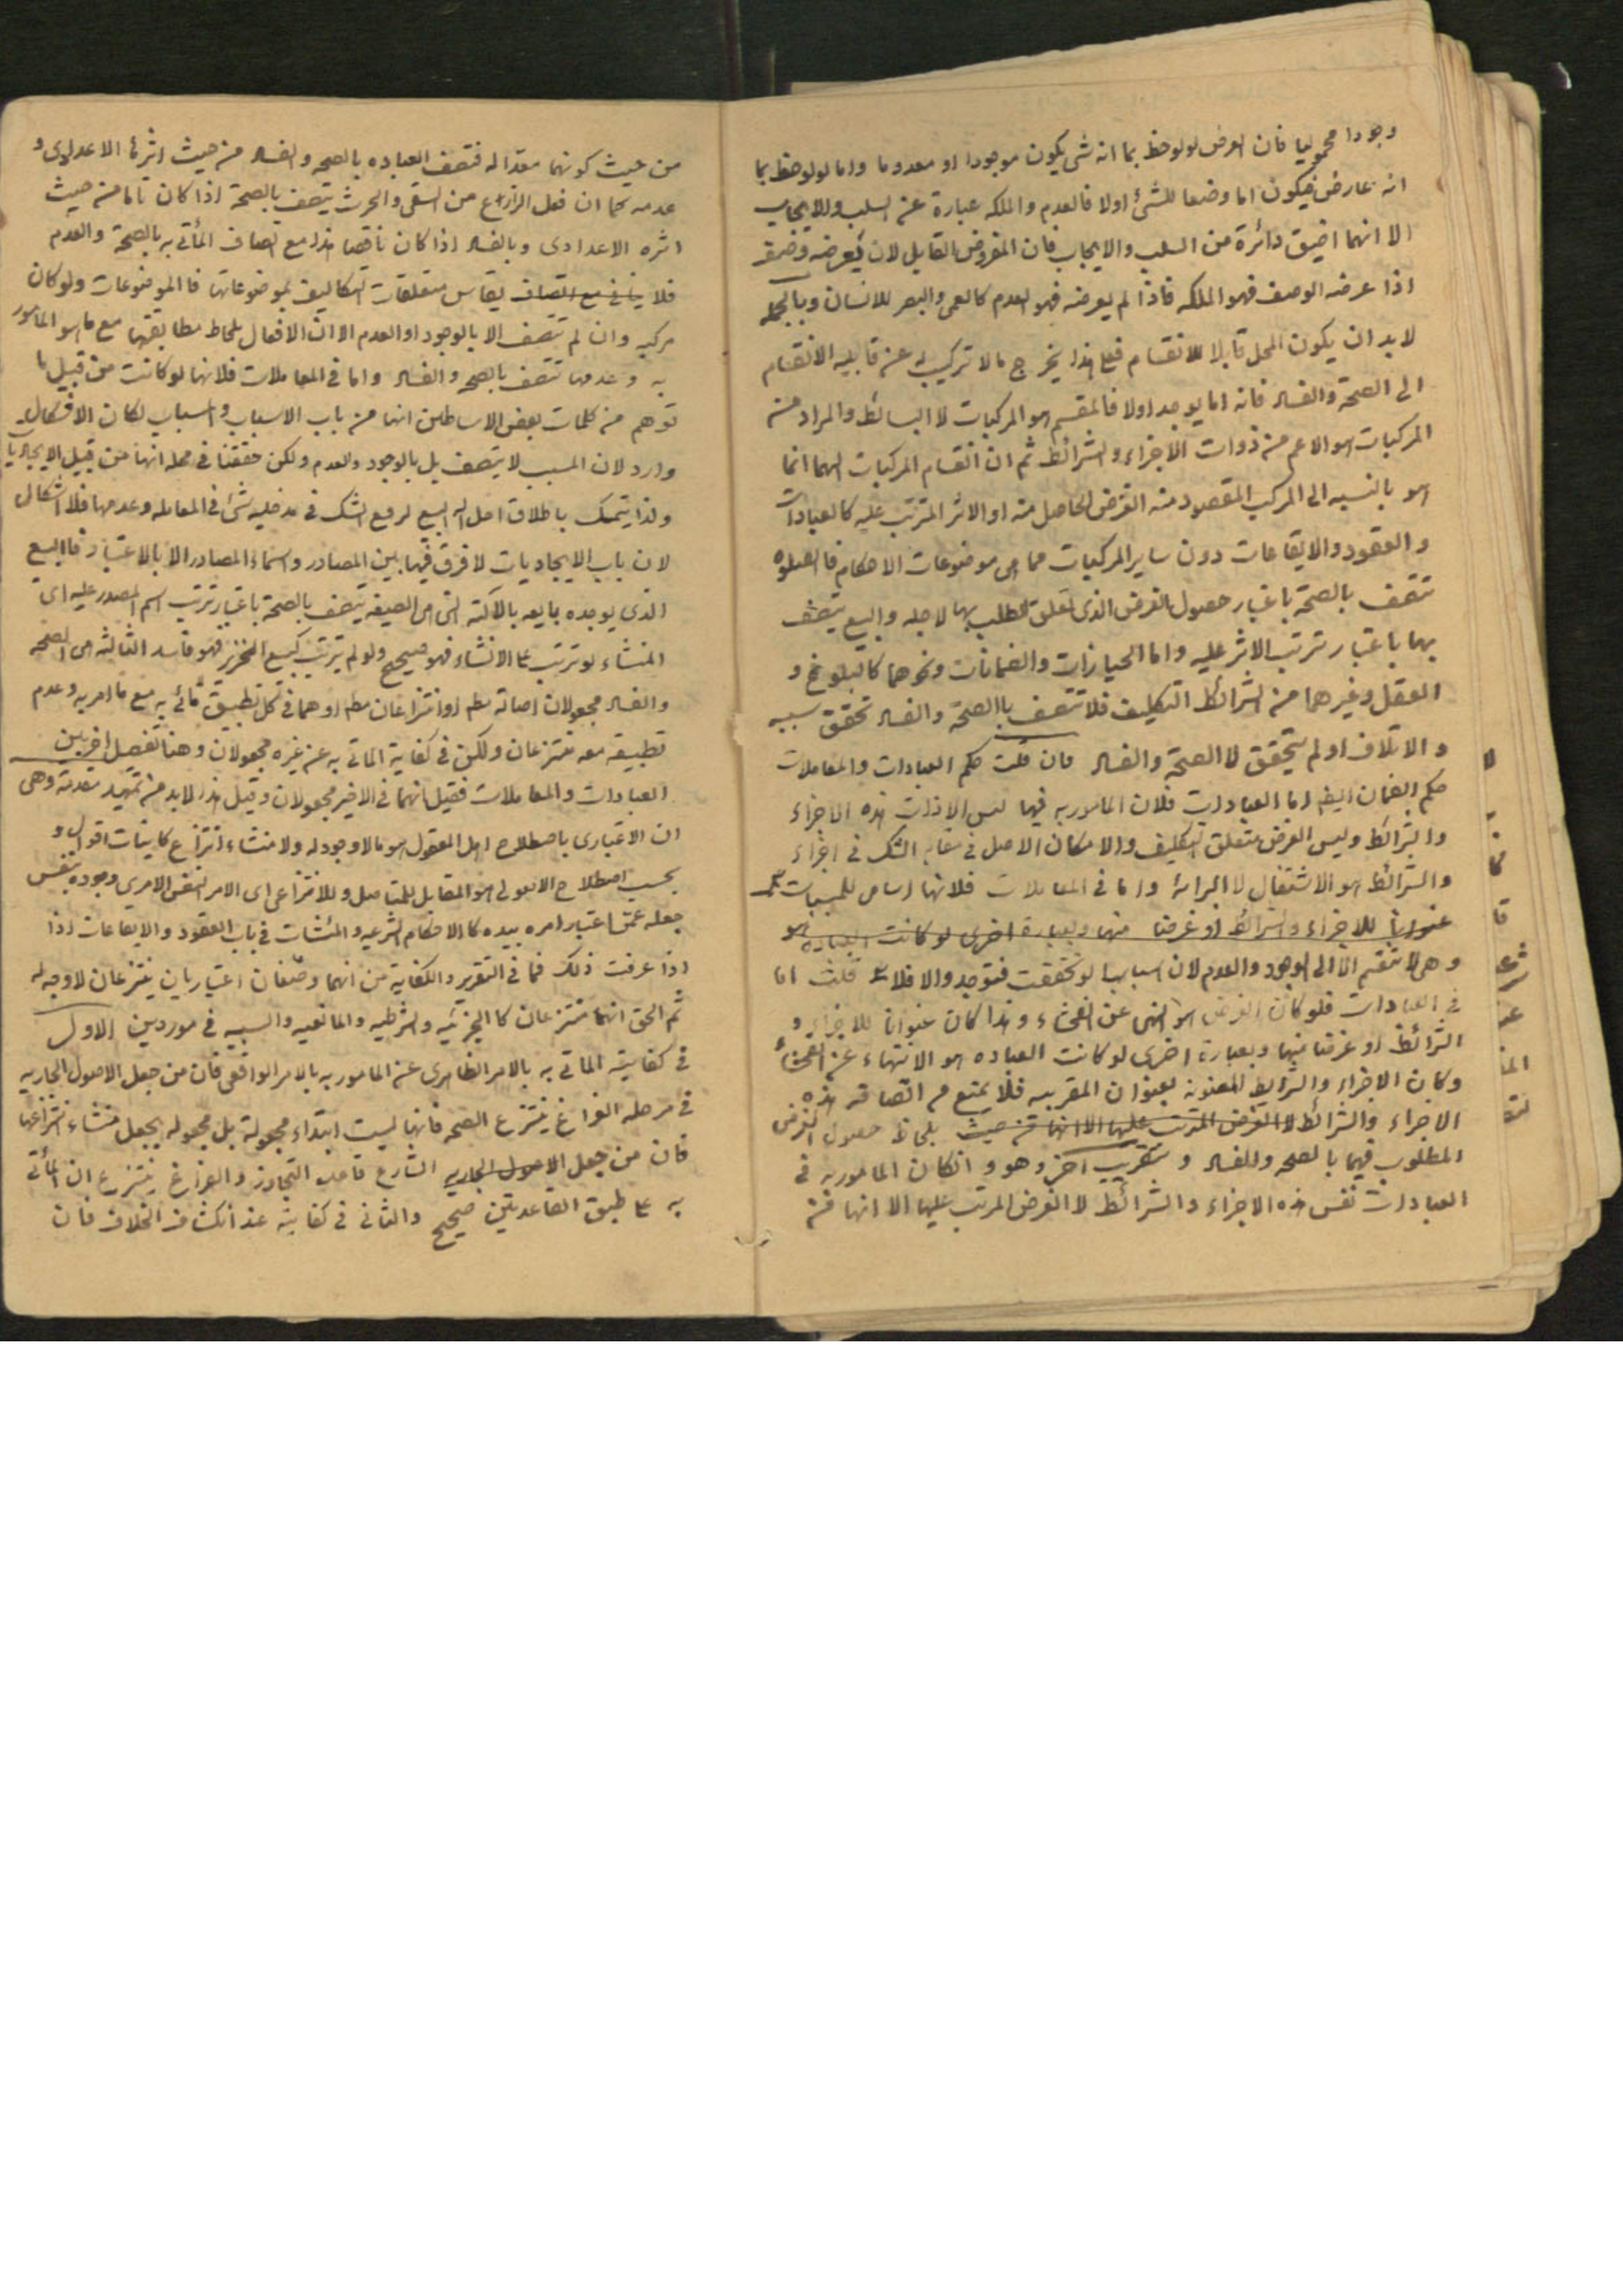 وجودا محموليا فان العرض لو لوحظ بما انه شئ يكون موجودا او معدوما واما لو لوحظ بما
انه عارض فيكون اما وضعا للشئ اولا فالعدم والملكه عبارة عن السلب والايجاب
الا انهما اضيق دائرة من السلب والايجاب فان المفروض القابل لان يعرضه وضعف
اذا عرضه الوصف فهو الملكه فاذا لم يعرضه فهو العدم كالعمى والبصر للانسان وبالجمله
لابد ان يكون المحل قابلا للانقسام فعلى هذا يخرج ما لا تركيب له عن قابليه الانقسام
الى الصحة والفساد فانه اما يوجد اولا فالمقسم هو المركبات لا البسائط والمراد من
المركبات هو الاعم من ذوات الاجزاء والشرائط ثم ان انقسام المركبات اليهما انما
هو بالنسبه الى المركب المقصود منه الغرض الحاصل منه او الاثر المترتب عليه كالعبادات
والعقود والايقاعات دون ساير المركبات مما هى موضوعات الاحكام فالصلوه
تتصف بالصحة باعتبار حصول الغرض الذى تعلق الطلب بها لاجله والبيع يتصف
بها باعتبار ترتب الاثر عليه واما الحيازات والضمانات ونحوهما كالبلوغ و
العقل وغيرهما من شرائط التكليف فلا تتصف باالصحة والفساد تحقق سببه
والاتلاف او لم يتحقق لا الصحة والفساد فان قلت حكم العبادات والمعاملات
حكم الضمان ايضا اما العبادات فلان المامور به فيها ليس الا ذات هذه الاجزاء
والشرائط وليس الغرض متعلق التكليف والا لكان الاصل فى مقام الشك فى اجزاء
والشرائط هو الاشتغال لا البرائة واما فى المعاملات فلانها اسامى للمسببات
عنوانا للاجزاء والشرائط او غرضا منها وبعبارة اخرى لو كانت العباده هو
وهى لا تنقسم الا الى الوجود والعدم لان اسبابها لو تحققت فتوجد والا فلا قلت اما
فى العبادات فلو كان الغرض هو النهى عن الفحشاء وهذا كان عنوانا للاجزاء و
الشرائط او غرضا منها وبعبارة اخرى لو كانت العباده هو الانتهاء عن الفحشاء
وكان الاجزاء والشرايط المعنونه بعنوان المقربيه فلا يمنع من اتصافه هذه
الاجزاء والشرائط لا الغرض المترتب عليها الا انها من حيث بلحاظ حصول الغرض
المطلوب فيها بالصحه والفساد وبتقريب اخر وهو وانكان المامور به فى
العبادات نفس هذه الاجزاء والشرائط لا الغرض المرتب عليها الا انها من
من حيث كونهما معدا له فتتصف العباده بالصحه والفساد من حيث اثرها الاعدادى و
عدمه كما ان فعل الزارع من السقى والحرث يتصف بالصحة اذا كان تاما من حيث
اثره الاعدادى وبالفساد اذا كان ناقصا هذا مع اتصاف المأتى به بالصحة والعدم
فلا ينافى مع اتصاف يقاس متعلقات التكاليف بموضوعاتها فالموضوعات ولو كان
مركبه وان لم تتصف الا بالوجود او العدم الا ان الافعال بلحاظ مطابقتها مع ما هو المامور
به وعدمها تتصف بالصحه والفساد واما فى المعاملات فلانها لو كانت من قبيل ما
توهم من كلمات بعض الاساطين انها من باب الاسباب والمسباب لكان الاشكال
وارد لان المسبب لا يتصف بل بالوجود والعدم ولكن حققنا فى محله انها من قبيل الايجاديات
ولذا يتمسك باطلاق احل الله البيع لرفع الشك فى مدخليه شئ فى المعامله وعدمها فلا اشكال
لان باب الايجاديات لا فرق فيها بين المصادر واسماء المصادر الا بالاعتبار فاالبيع
الذى يوجده بايعه بالآلة التى هى الصيغه يتصف بالصحة باعتبار ترتب اسم المصدر عليه اى
المنشاء لو ترتب على الانشاء فهو صحيح ولو لم يترتب كبيع الخنزير فهو فاسد الثالثه هى الصحه
والفساد مجعولان اصالة مطلقا او انتزاعان مطلقا او هما فى كل تطبيق مأتى به مع ما امر به وعدم
تطبيقه معه منتزعان ولكن فى كفاية الماتى به عن غيره مجعولان وهنا تفصيل اخر بين
العبادات والمعاملات فقيل انهما فى الاخير مجعولان وقبل هذا لابد من تمهيد مقدمة وهى
ان الاعتبارى باصطلاح اهل المعقول هو ما لا وجود له ولا منشاء انتزاع كانياب اغوال و
بحسب اصطلاح الاصولى هو المقابل للمتاصل وللانتزاعى اى الامر النفس الامرى وجوده بنفس
جعله عمن اعتبار امره بيده كالاحكام الشرعيه والمنشات فى باب العقود والايقاعات اذا
اذا عرفت ذلك فما فى التقرير والكفاية من انهما وصفان اعتباريان ينتزعان لا وجه له
ثم الحق انهما منتزعان كا الجزئيه والشرطيه والمانعيه والسببيه فى موردين الاول
فى كفايته الماتى به بالامر الظاهرى عن المامور به بالامر الواقعى فان من جعل الاصول الجاريه
فى مرحله الفراغ ينتزع الصحه فانها ليست ابتداء مجعولة بل مجعوله بجعل منشاء انتزاعها
فان من جعل الاصول الجاريه الشارع قاعدة التجاوز والفراغ ينتزع ان المأتى
به على طبق القاعدتين صحيح والثانى فى كفايته عند انكشاف الخلاف فان